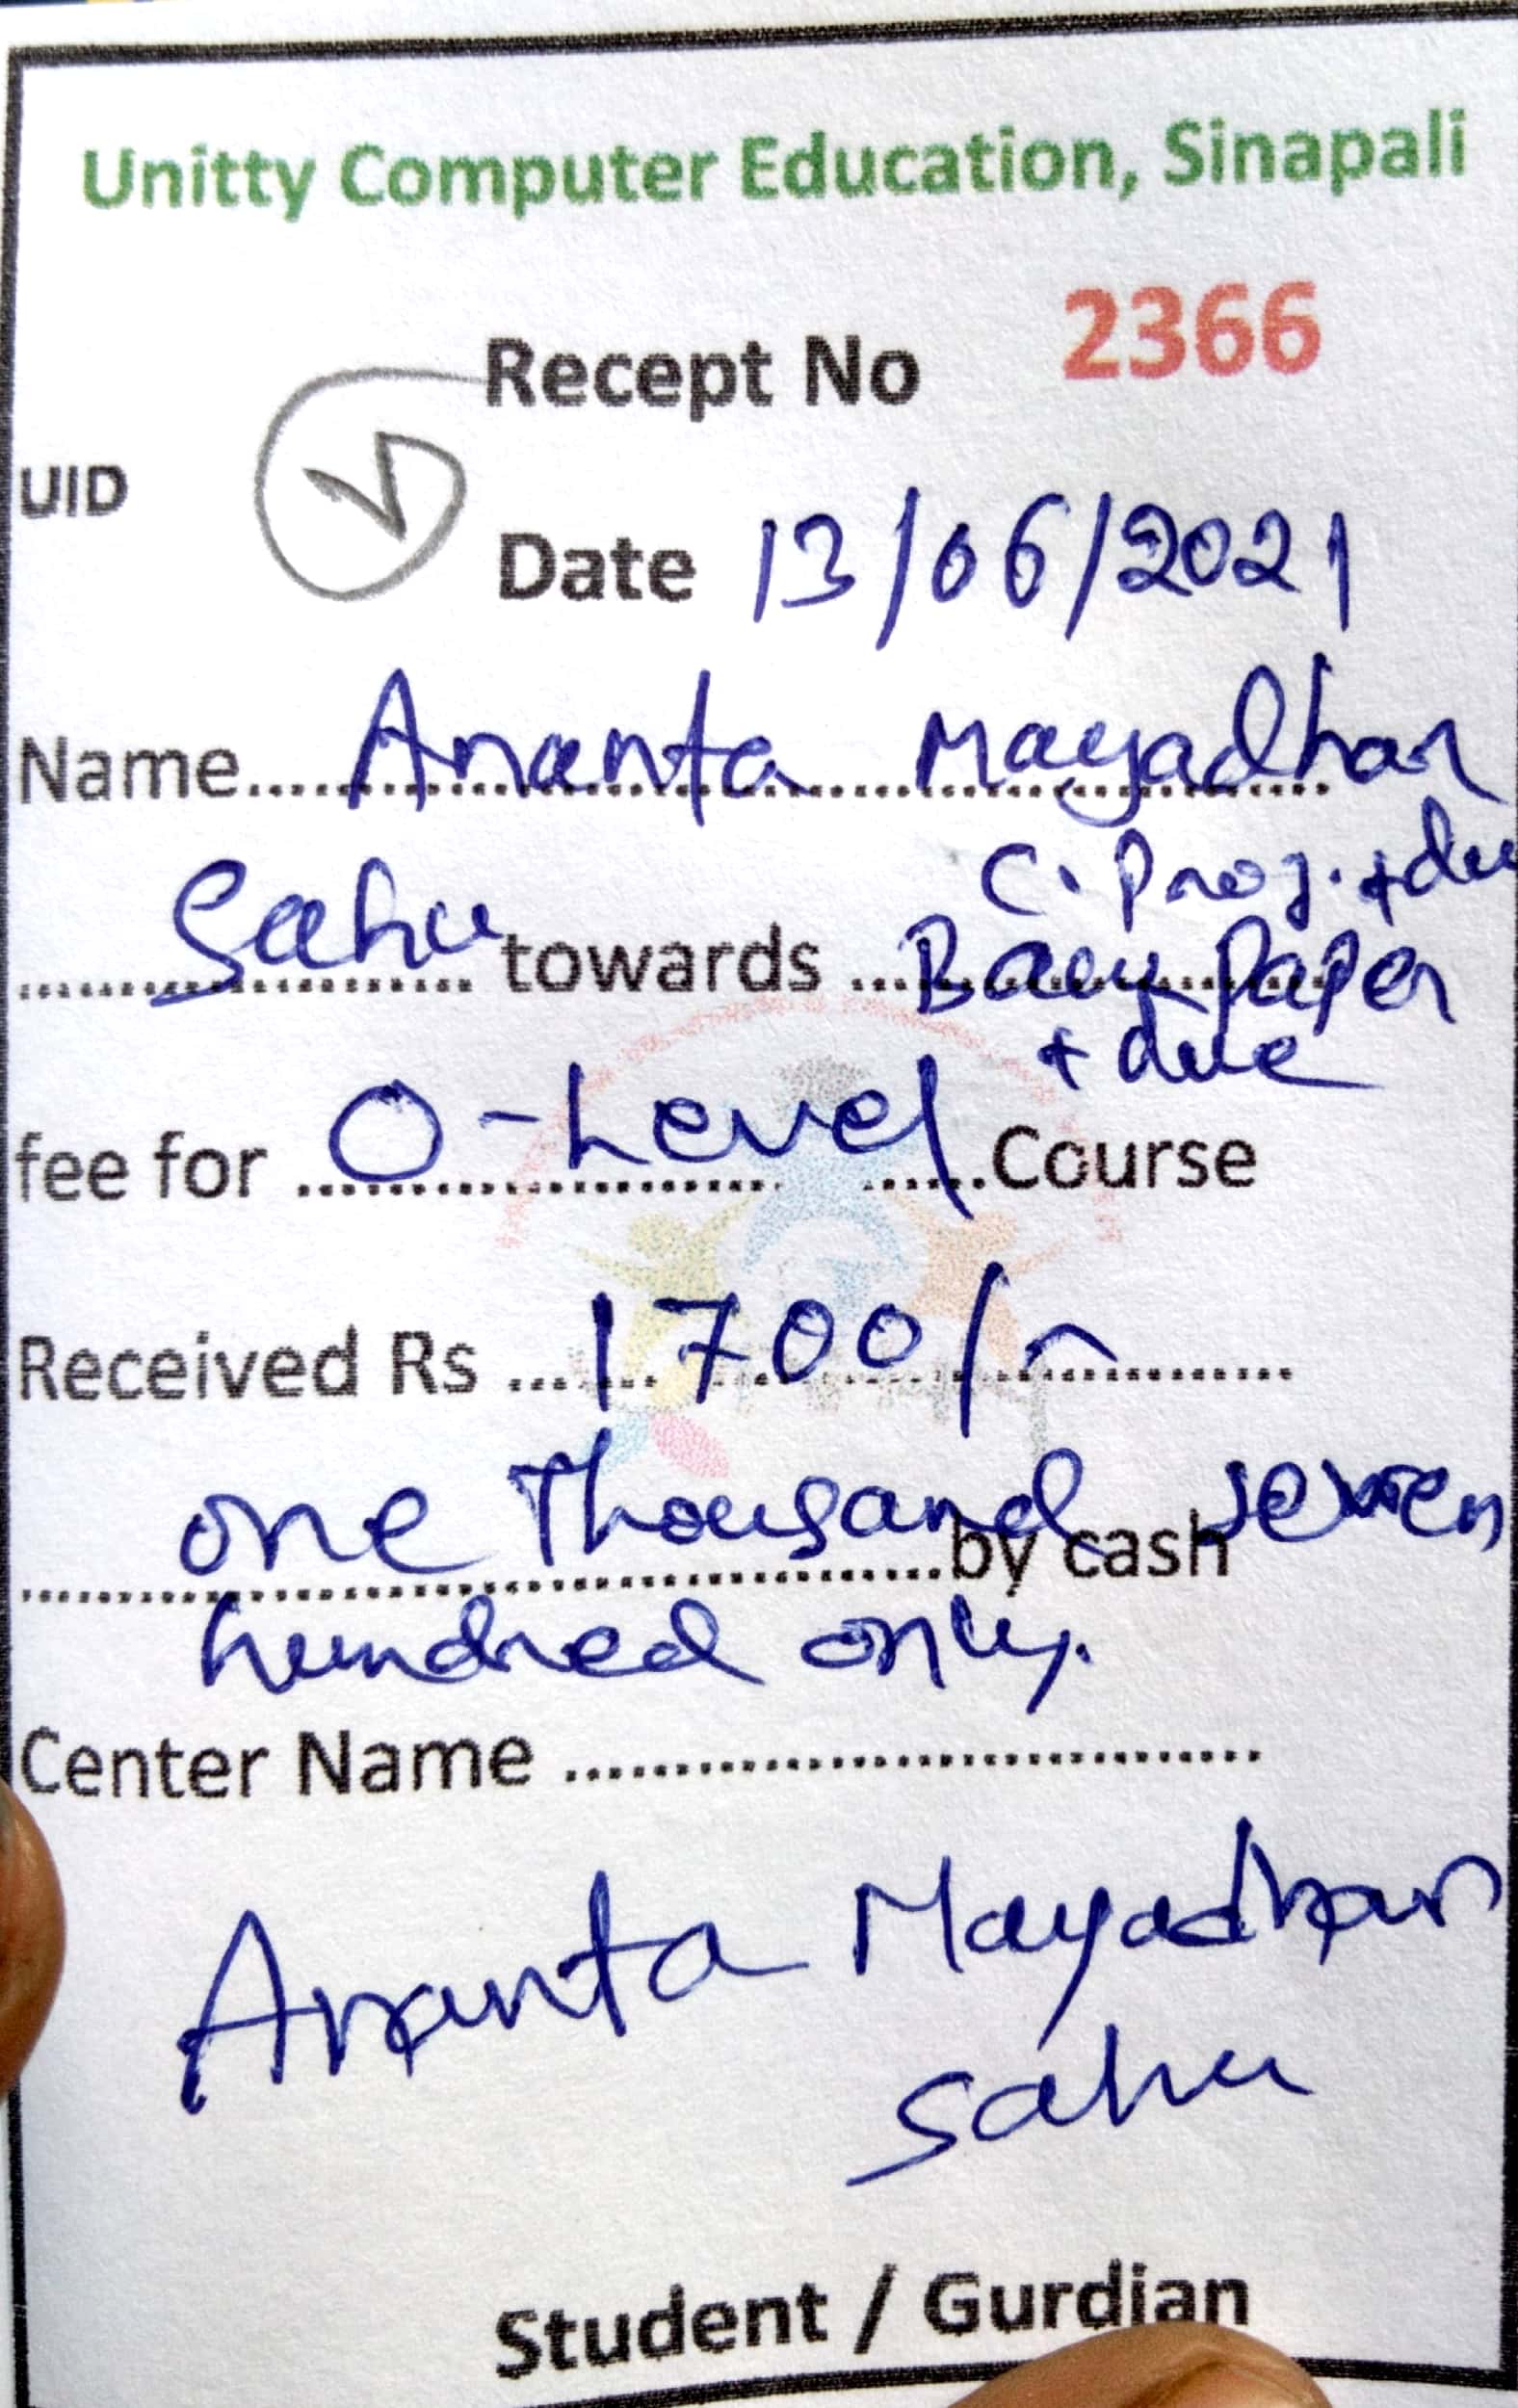 Unitty Computer Education, Sinapali
Recept No 2366
UID
Date 13/06/2021
Name.... Ananta Mayadhar
C. Prog. + du
Sahu towards ... Back Paper
+ due
fee for ... O-Level ......Course
Received Rs ... 1700/-
one Thousand seven
by cash
hundred only.
Center Name ................................
Ananta Mayadhar
Sahu
Student / Gurdian